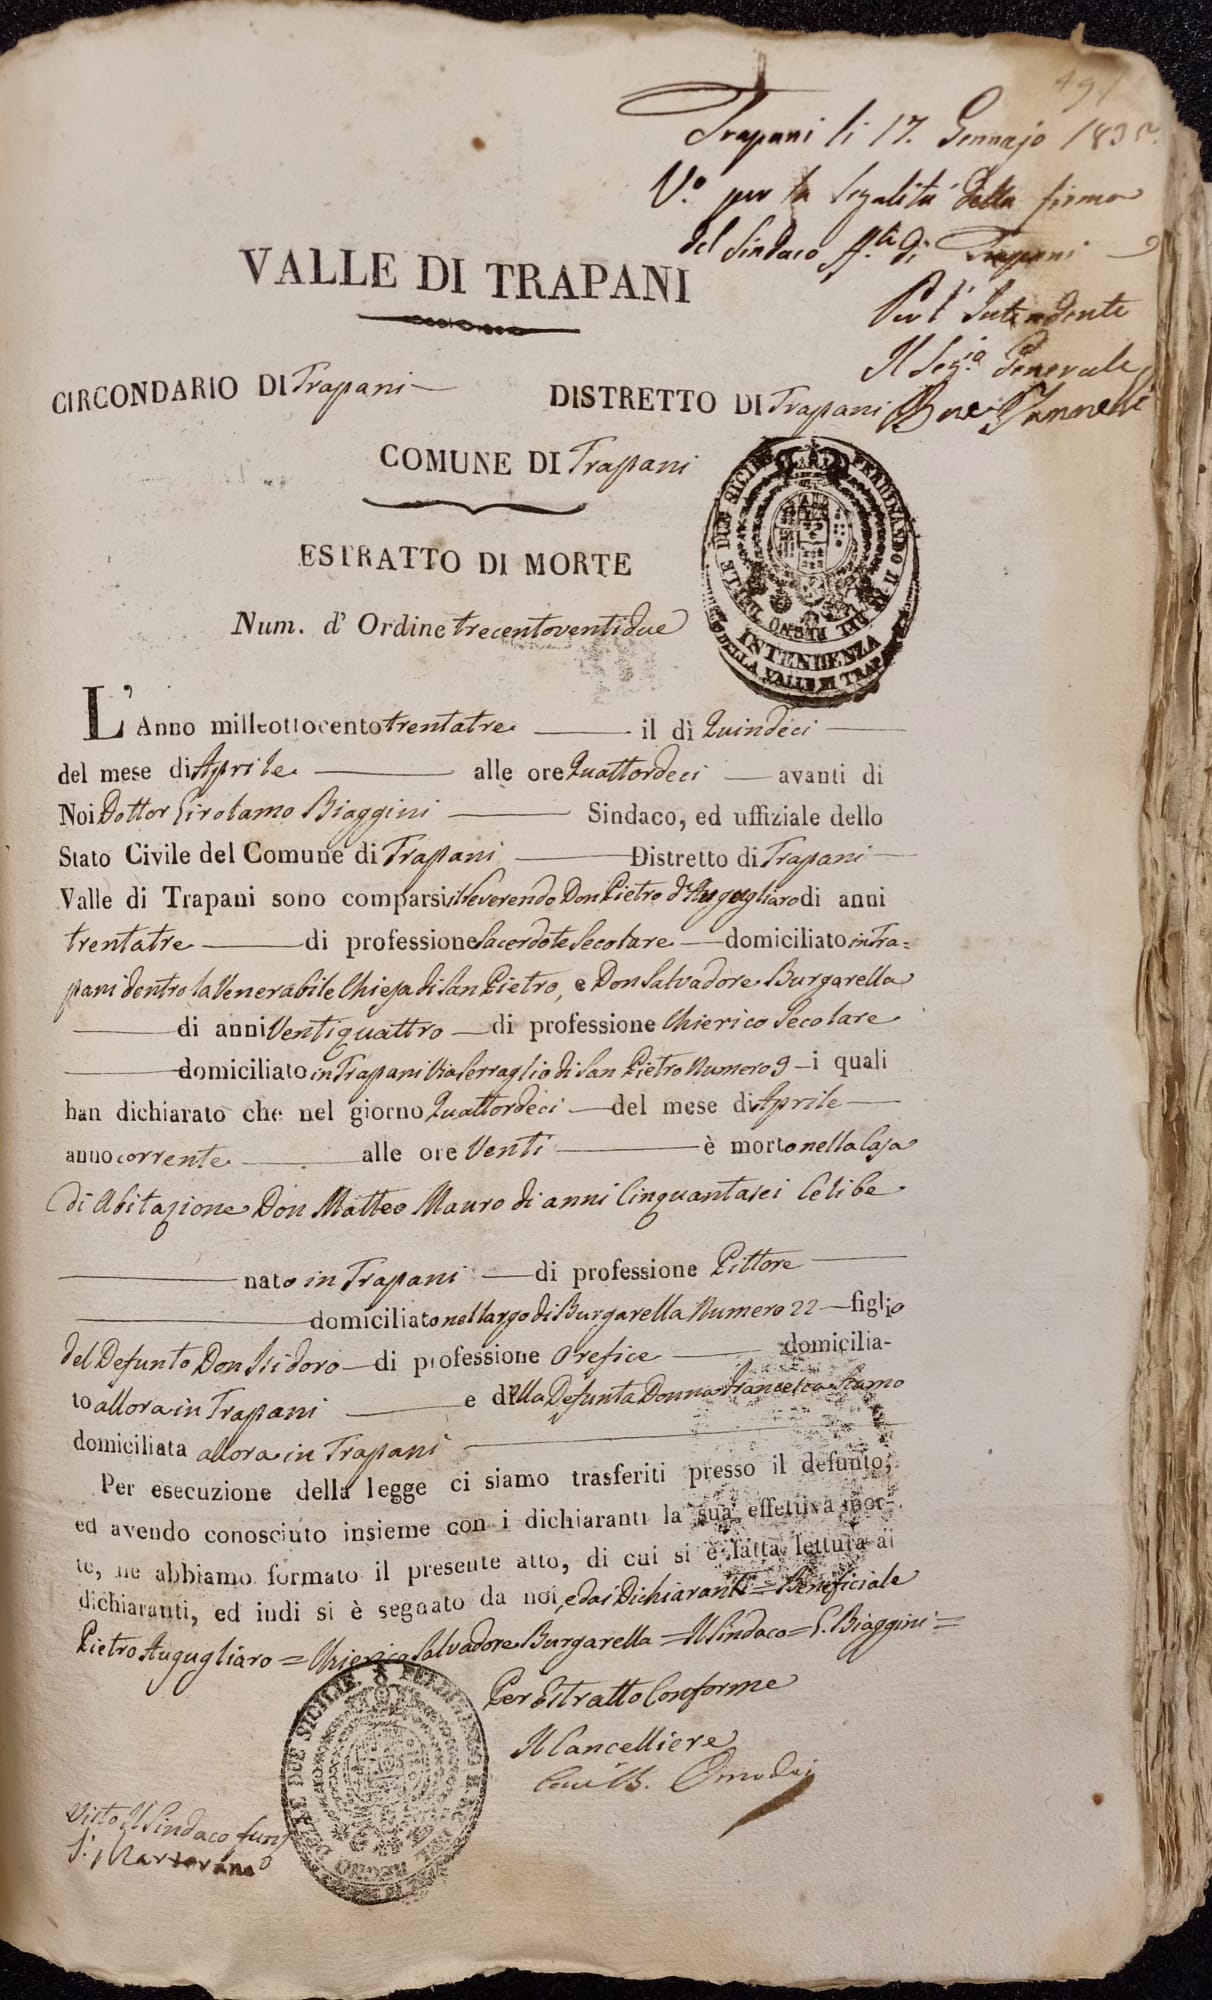 491
Trapani li 17. Gennajo 183
V.º per la legalità della firma
del Sindaco ff. di Trapani
Per l'Intendente
Il Seg.io Generale
VALLE DI TRAPANI
CIRCONDARIO DI Trapani DISTRETTO DI Trapani
COMUNE DI Trapani
ESTRATTO DI MORTE
FERDINANDO II RE DEL REGNO DELLE DUE SICILIE
INTENDENZA
DELLA VALLE DI TRAPANI
Num. d' Ordine trecentoventidue
L' Anno milleottocento trentatre il dì Quindeci
del mese di Aprile alle ore Quattordeci avanti di
Noi Dottor Girolamo Biaggini Sindaco, ed uffiziale dello
Stato Civile del Comune di Trapani Distretto di Trapani
Valle di Trapani sono comparsi il Reverendo Don Pietro d'Augugliaro di anni
trentatre di professione Sacerdote Secolare domiciliato in Tra=
pani dentro la Venerabile Chiesa di San Pietro, e Don Salvadore Burgarella
di anni Ventiquattro di professione Chierico Secolare
domiciliato in Trapani Via Serraglio di San Pietro Numero 9 i quali
han dichiarato che nel giorno Quattordeci del mese di Aprile
anno corrente alle ore Venti è morto nella Casa
di Abitazione Don Matteo Mauro di anni Cinquantasei Celibe
nato in Trapani di professione Pittore
domiciliato nel largo di Burgarella Numero 22 figlio
del Defunto Don Isidoro di professione Orefice domicilia-
to allora in Trapani e della Defunta Donna Francesca
domiciliata allora in Trapani
Per esecuzione della legge ci siamo trasferiti presso il defunto,
ed avendo conosciuto insieme con i dichiaranti la sua effettiva mor-
te, ne abbiamo formato il presente atto, di cui si è fatta lettura ai
dichiaranti, ed indi si è segnato da noi, e dai Dichiaranti = Beneficiale
Pietro Augugliaro = Chierico Salvadore Burgarella = Il Sindaco = G. Biaggini =
Per Estratto Conforme
Il Cancelliere
Omodei
Visto Il Sindaco funz